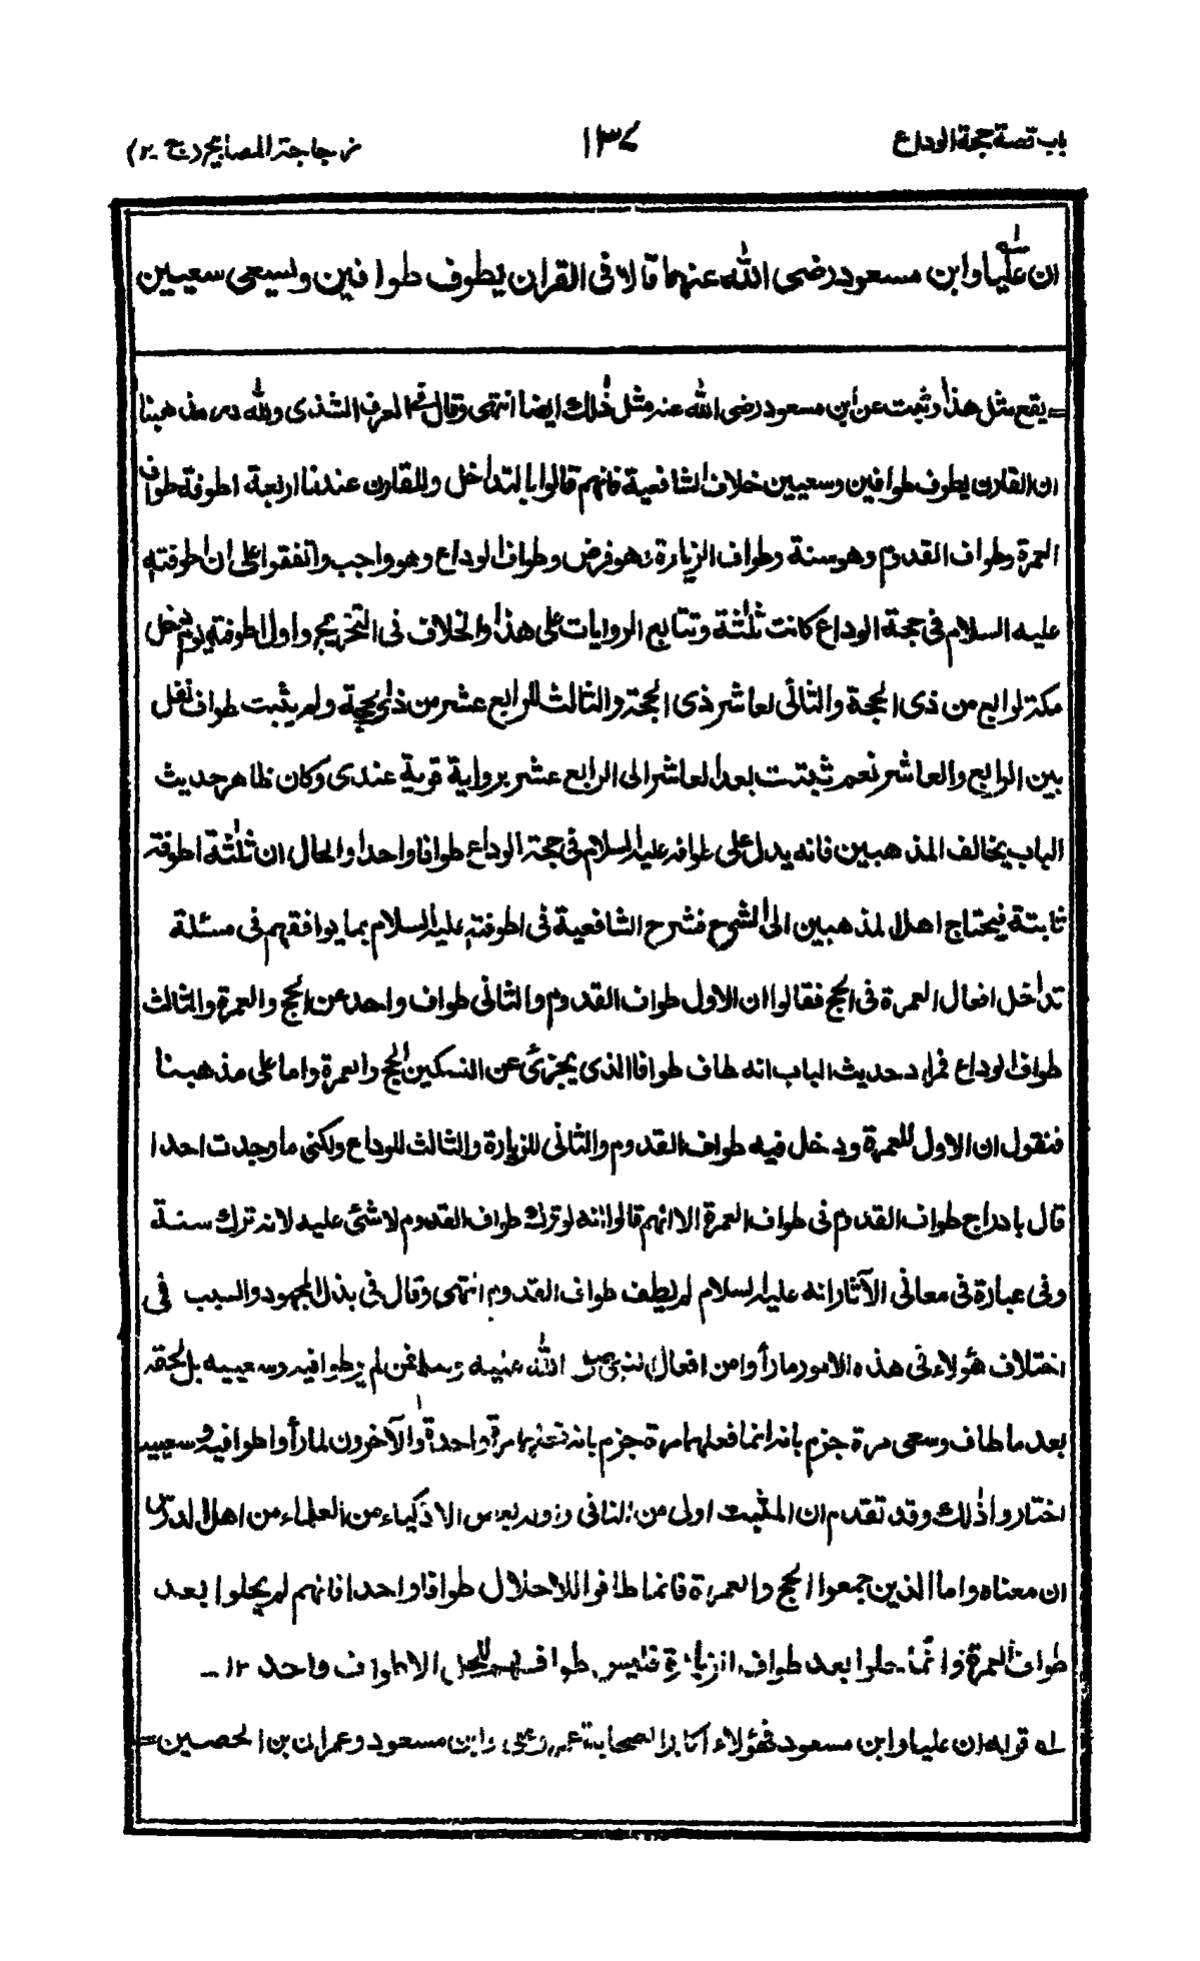 باب قصة حجة الوداع
١٣٧
زجاجة المصابيح (ج ـ ٢)
ان عليا وابن مسعود رضى الله عنهما قالا فى القران يطوف طوافين ويسعى سعيين
= يقع مثل هذا وثبت عن ابن مسعود رضى الله عنه مثل ذلك ايضا انتهى وقال فى العرف الشذى ولله در مذهبنا
ان القارن يطوف طوافين وسعيين خلاف الشافعية فانهم قالوا بالتداخل وللقارن عندنا اربعة اطوفة طواف
العمرة وطواف القدوم وهو سنة وطواف الزيارة وهو فرض وطواف الوداع وهو واجب واتفقوا على ان اطوفته
عليه السلام فى حجة الوداع كانت ثلثة وتتابع الروايات على هذا والخلاف فى التخريج واول اطوفته يوم دخل
مكة لرابع من ذى الحجة والثانى لعاشر ذى الحجة والثالث للرابع عشر من ذى الحجة ولم يثبت طواف نفل
بين الرابع والعاشر نعم ثبتت بعد العاشر الى الرابع عشر برواية قوية عندى وكان ظاهر حديث
الباب يخالف المذهبين فانه يدل على طوافه عليه السلام فى حجة الوداع طوافا واحدا والحال ان ثلثة اطوفة
ثابتة فيحتاج اهل المذهبين الى الشرح فشرح الشافعية فى اطوفته عليه السلام بما يوافقهم فى مسئلة
تداخل افعال العمرة فى الحج فقالوا ان الاول طواف القدوم والثانى طواف واحد عن الحج والعمرة والثالث
طواف الوداع فمراد حديث الباب انه طاف طوافا الذى يجزئ عن النسكين الحج والعمرة واما على مذهبنا
فنقول ان الاول للعمرة ودخل فيه طواف القدوم والثانى للزيارة والثالث للوداع ولكنى ما وجدت احدا
قال بادراج طواف القدوم فى طواف العمرة الا انهم قالوا انه لو ترك طواف القدوم لا شئ عليه لانه ترك سنة
وفى عبارة فى معانى الآثار انه عليه السلام لم يطف طواف القدوم انتهى وقال فى بذل المجهود والسبب فى
اختلاف هؤلاء فى هذه الامور ما رأوا من افعال النبى صلى الله عليه وسلم فمن لم ير طوافيه وسعييه بل لحقه
بعد ما طاف وسعى مرة جزم بانه انما فعلهما مرة جزم بانه فعلهما مرة واحدة والآخرون لما رأوا طوافيه وسعييه
اختاروا ذلك وقد تقدم ان المثبت اولى من النافى وزعم بعض الاذكياء من العلماء من اهل الدرس
ان معناه واما الذين جمعوا الحج والعمرة فانما طافوا للاحلال طوافا واحدا فانهم لم يحلوا بعد
طواف العمرة وانما حلوا بعد طواف الزيارة فليس طوافهم للحل الا طواف واحد ١٢ ـ
لـه قوله ان عليا وابن مسعود فهؤلاء اكابر الصحابة عمر وعلى وابن مسعود وعمران بن الحصين =